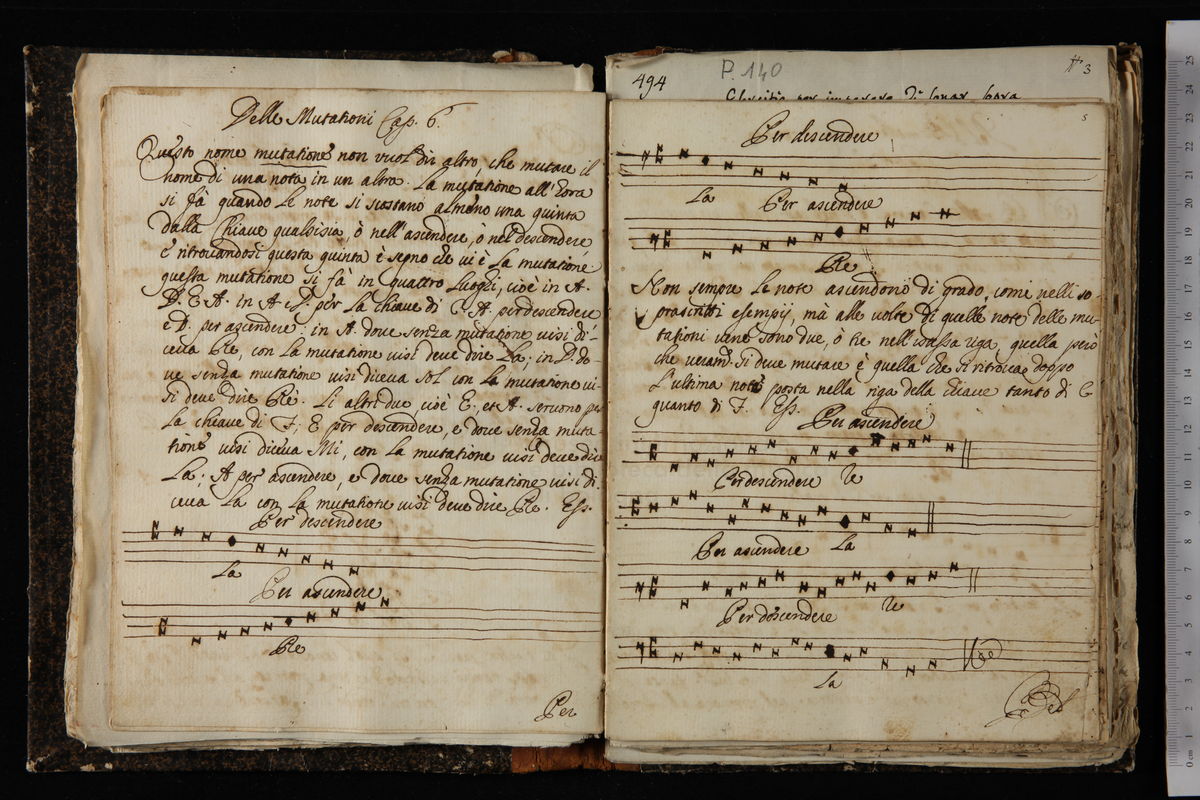 Delle Mutationi Cap. 6.
Questo nome mutatione non vuol dir altro, che mutare il
nome di una nota in un altra. La mutatione all'hora
si fà quando le note si scostano almeno una quinta
dalla Chiave qualsisia, ò nell'ascendere, ò nel descendere
e ritrovandosi questa quinta è segno che vi è la mutatione
questa mutatione si fà in quattro luoghi, cioè in A.
D. E. A. in A. D. per la chiave di C. A. per descendere
e D. per ascendere: in A. dove senza mutatione visi di-
ceva Re, con la mutatione visi deve dire La; in D. do-
ve senza mutatione visi diceva Sol con la mutatione vi-
si deve dire Re. Li altri due, cioè E., et A. servono per
la chiave di F; E per descendere, e dove senza muta-
tione visi diceva Mi, con la mutatione visi deve dire
La; A per ascendere, e dove senza mutatione visi di-
ceva La con la mutatione visi deve dire Re. Ess.
Per descendere
La
Per ascendere
Re
Per
494
P. 140
# 3
5
Per descendere
La
Per ascendere
Re
Non sempre le note ascendono di grado, come nelli so-
prascritti essempij, ma alle volte di quelle note delle mu-
tationi vene sono due, ò tre nell'istessa riga, quella però
che veram. si deve mutare è quella che si ritrova doppo
l'ultima nota posta nella riga della chiave tanto di C
quanto di F. Ess.
Per ascendere
re
Per descendere
La
Per ascendere
re
Per descendere
la
Del